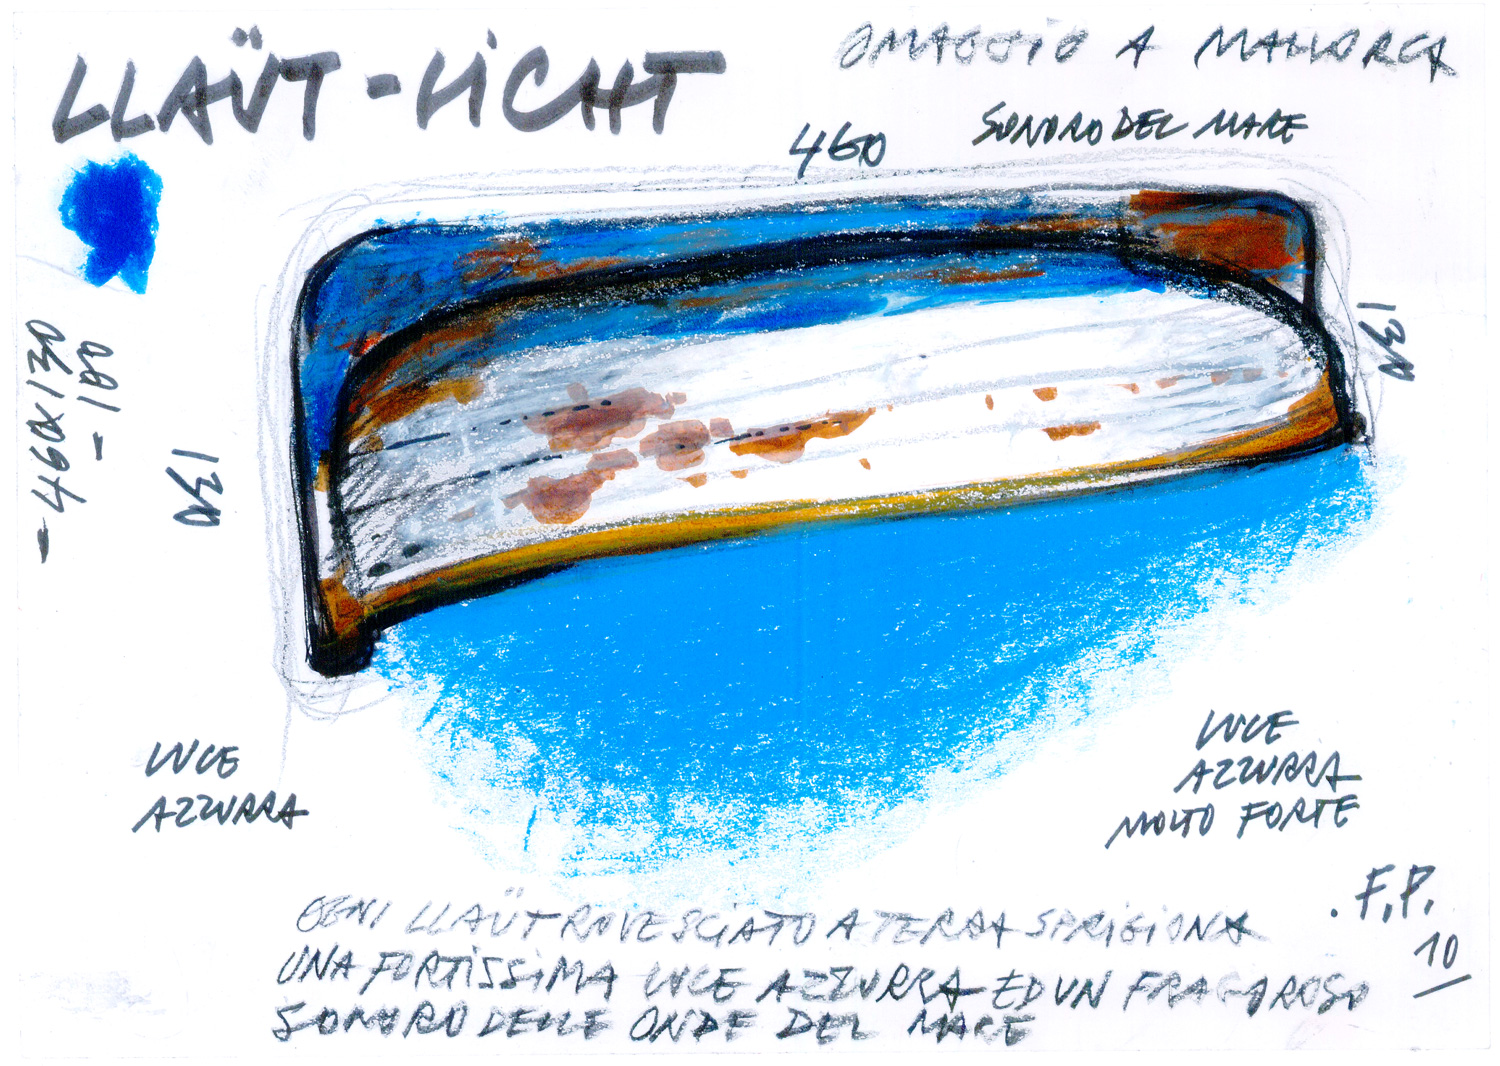 LLAÜT-LICHT
OMAGGIO A MALLORCA
SONORO DEL MARE
460
130
130
-460X130
-180
LUCE
AZZURRA
LUCE
AZZURRA
MOLTO FORTE
OGNI LLAÜT ROVESCIATO A TERRA SPRIGIONA
UNA FORTISSIMA LUCE AZZURRA ED UN FRAGOROSO
SONORO DELLE ONDE DEL MARE
. F.P.
10